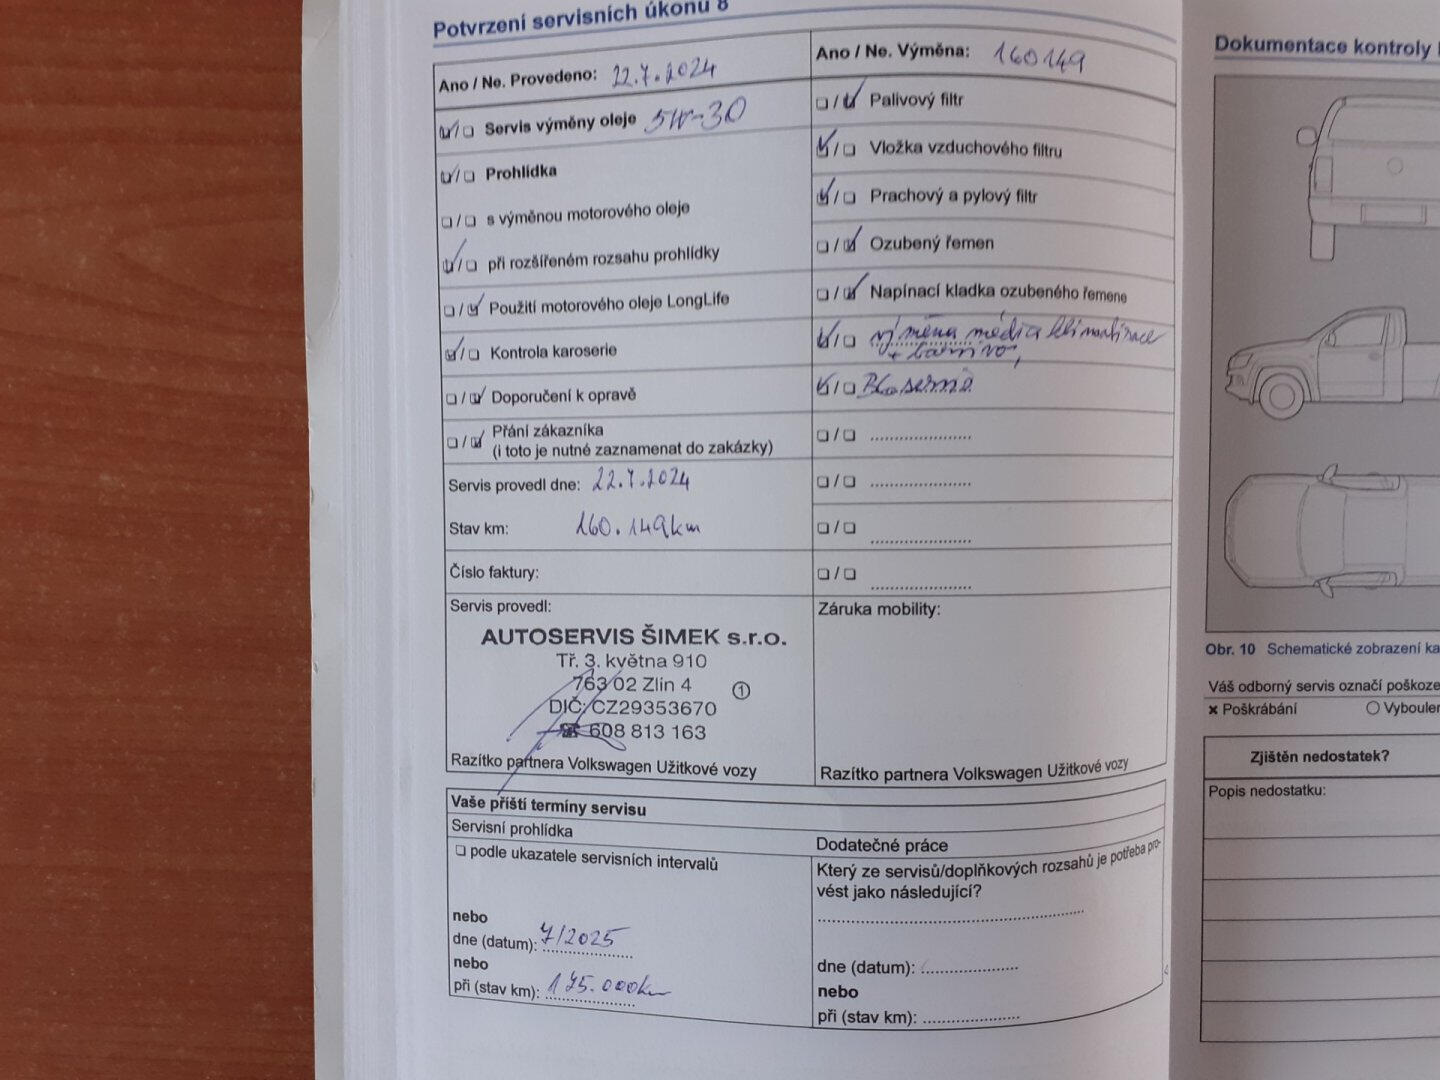 Potvrzení servisních úkonů 8
Ano / Ne. Provedeno: 22.7.2024
Servis výměny oleje 5W-30
Prohlídka
s výměnou motorového oleje
při rozšířeném rozsahu prohlídky
Použití motorového oleje LongLife
Kontrola karoserie
Doporučení k opravě
Přání zákazníka
(i toto je nutné zaznamenat do zakázky)
Servis provedl dne: 22.7.2024
Stav km: 160.149km
Číslo faktury:
Servis provedl:
AUTOSERVIS ŠIMEK s.r.o.
Tř. 3. května 910
763 02 Zlín 4
1
DIČ: CZ29353670
☎ 608 813 163
Razítko partnera Volkswagen Užitkové vozy
Ano / Ne. Výměna: 160149
Palivový filtr
Vložka vzduchového filtru
Prachový a pylový filtr
Ozubený řemen
Napínací kladka ozubeného řemene
výměna média klimatizace
+ barvivo,
Záruka mobility:
Razítko partnera Volkswagen Užitkové vozy
Vaše příští termíny servisu
Servisní prohlídka
podle ukazatele servisních intervalů
nebo
dne (datum): 7/2025
nebo
při (stav km): 175.000km
Dodatečné práce
Který ze servisů/doplňkových rozsahů je potřeba pro-
vést jako následující?
dne (datum):
nebo
při (stav km):
Dokumentace kontroly
Obr. 10 Schematické zobrazení ka
Váš odborný servis označí poškoze
× Poškrábání
○ Vyboulen
Zjištěn nedostatek?
Popis nedostatku: